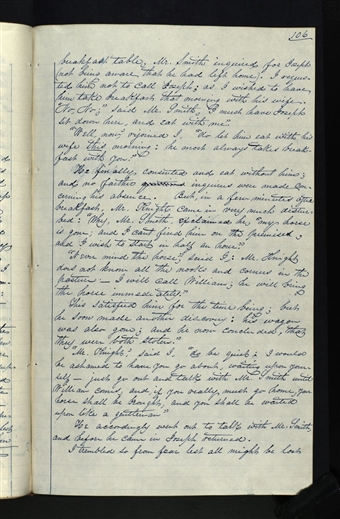 106
breakfast table, Mr. Smith inquired for Joseph
(not being aware that he had left home); I reques-
ted him not to call Joseph; as I wished to have
him take breakfast that morning with his wife.
"No, No;" said Mr. Smith, "I must have Joseph
sit down here, and eat with me."
"Well, now", rejoined I, "do let him eat with his
wife this morning: he most always takes break-
fast with you."
He finally, consented and eat without him;
and no farther inquiries were made con-
cerning his absence. But, in a few minutes after
breakfast, Mr. Knight came in very much distur-
bed: "Why, Mr. Smith, exclaimed he, "my horse
is gone; and I can't find him on the premises;
and I wish to start in half an hour."
"Never mind the horse", said I; Mr. Knight
does not know all the nooks and corners in the
pasture — I will call William; he will bring
the horse immediately."
This satisfied him for the time being; but
he soon made another discovery; his wagon
was also gone; and he now concluded, that
they were both stolen."
"Mr. Knight", said I. "do be quiet; I would
be ashamed to have you go about, waiting upon your-
self — just go out and talk with Mr. Smith until
William comes; and if you really must go home, your
horse shall be brought, and you shall be waited
upon like a gentleman"
He accordingly went out to talk with Mr. Smith,
and before he came in Joseph returned.
I trembled so from fear lest all might be lost